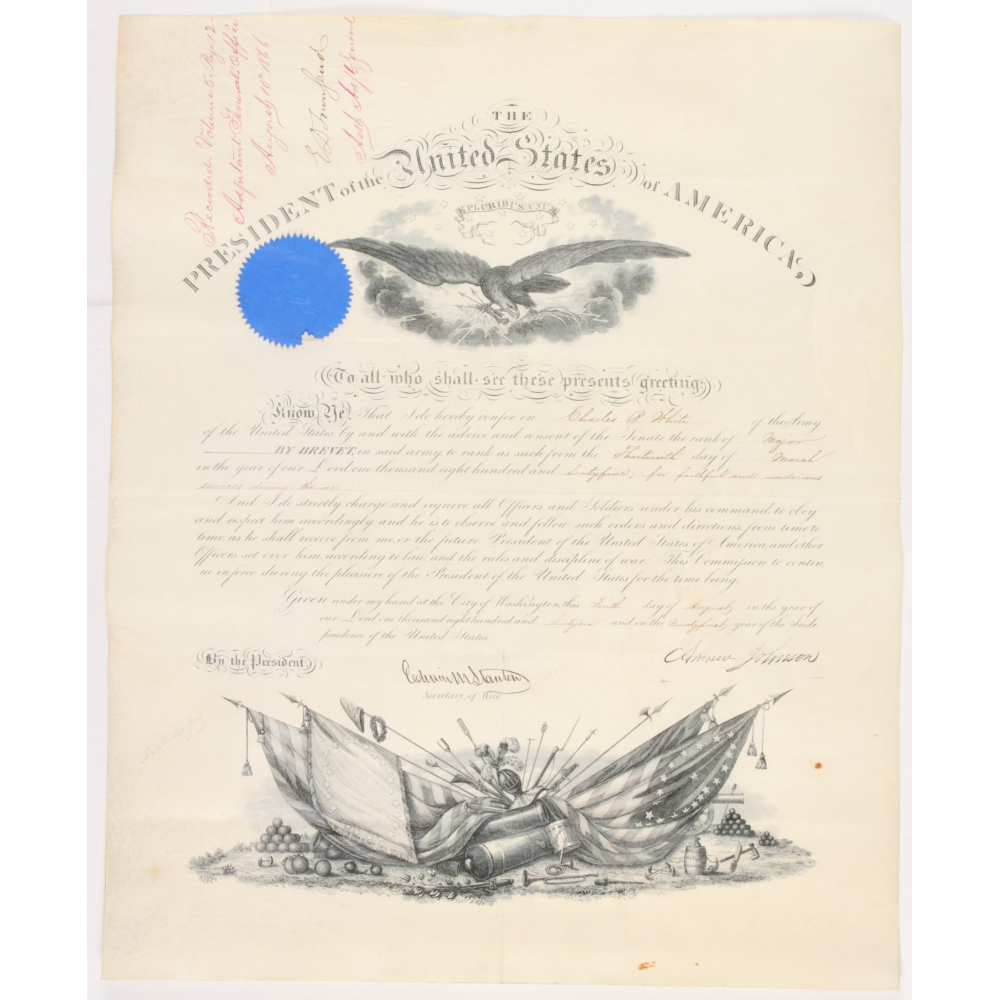 Recorded Volume 5. Page 2
Adjutant General's Office
August 10th 1866
E D Townsend
Asst. Adjt. General
THE
PRESIDENT of the United States of AMERICA,
E PLURIBUS UNUM
To all who shall see these presents greeting:
Know Ye, That I do hereby confer on Charles P. White of the Army
of the United States by and with the advice and consent of the Senate the rank of Major
BY BREVET, in said army to rank as such from the Thirteenth day of March
in the year of our Lord one thousand eight hundred and sixty five, for faithful and meritorious
services during the war
And I do strictly charge and require all Officers and Soldiers under his command to obey
and respect him accordingly and he is to observe and follow such orders and directions from time to
time, as he shall receive from me, or the future President of the United States of America, and other
Officers set over him, according to law, and the rules and discipline of war. This Commission to contin,
ue in force during the pleasure of the President of the United States for the time being.
Given under my hand at the City of Washington, this Tenth day of August, in the year of
our Lord one thousand eight hundred and sixty six and in the ninety first, year of the Inde
pendence of the United States
By the President, Andrew Johnson
Edwin M Stanton
Secretary of War